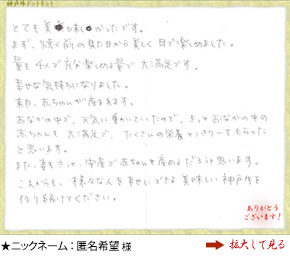 神戸牛ドットネット
とても美味しかったです。
まず、焼く前の見た目から美しく目で楽しめました。
量も4人で充分楽しめる量で大満足です。
幸せな気持ちになりました。
来月、赤ちゃんが産まれます。
おなかの中で、元気に動かしていたので、きっとおなかの中の
赤ちゃんも大満足で、たくさんの栄養とパワーをもらった
と思います。
また、妻もきっと、安産で赤ちゃんを産めるだろうと思います。
これからも、様々な人を幸せにできる美味しい神戸牛を
作り続けてください。
ありがとう
ございます!
★ニックネーム：匿名希望 様
➡拡大して見る